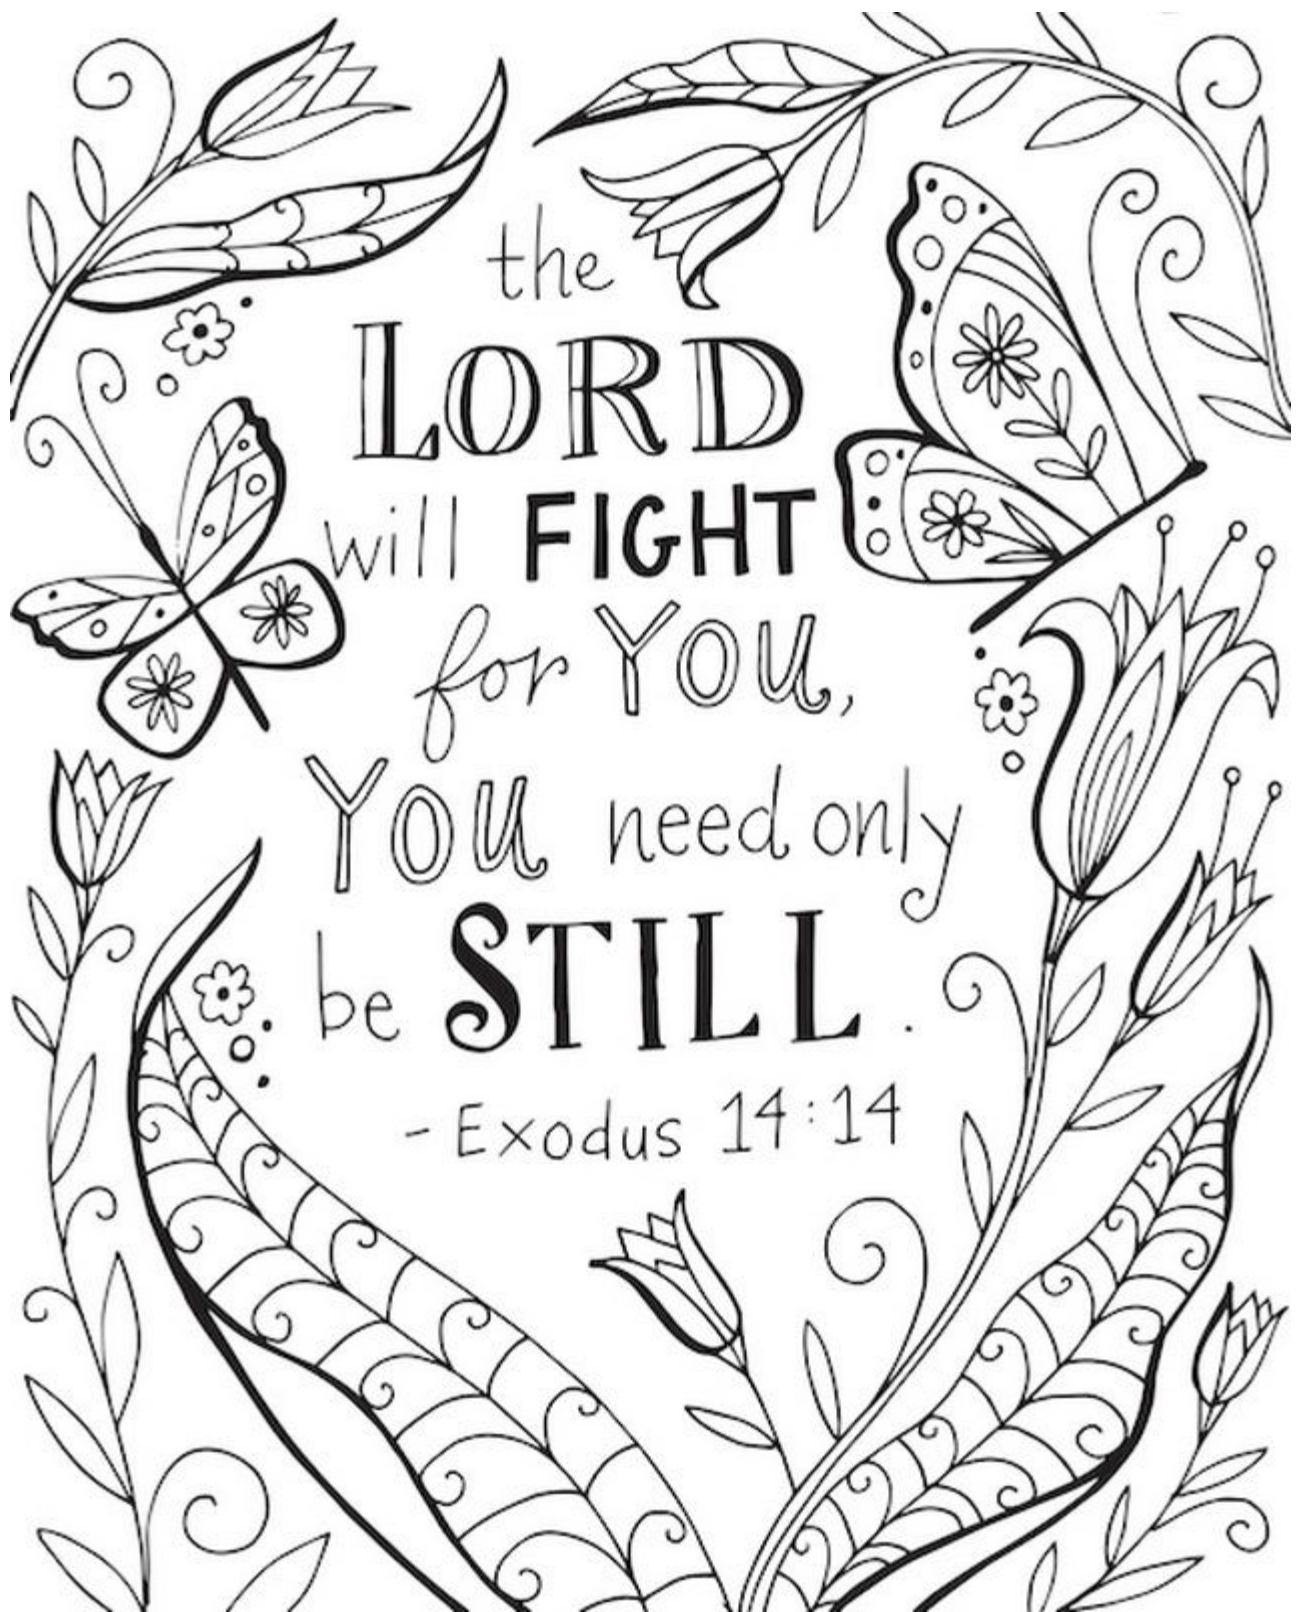 the
LORD
will FIGHT
for YOU,
YOU need only
be STILL.
- Exodus 14:14